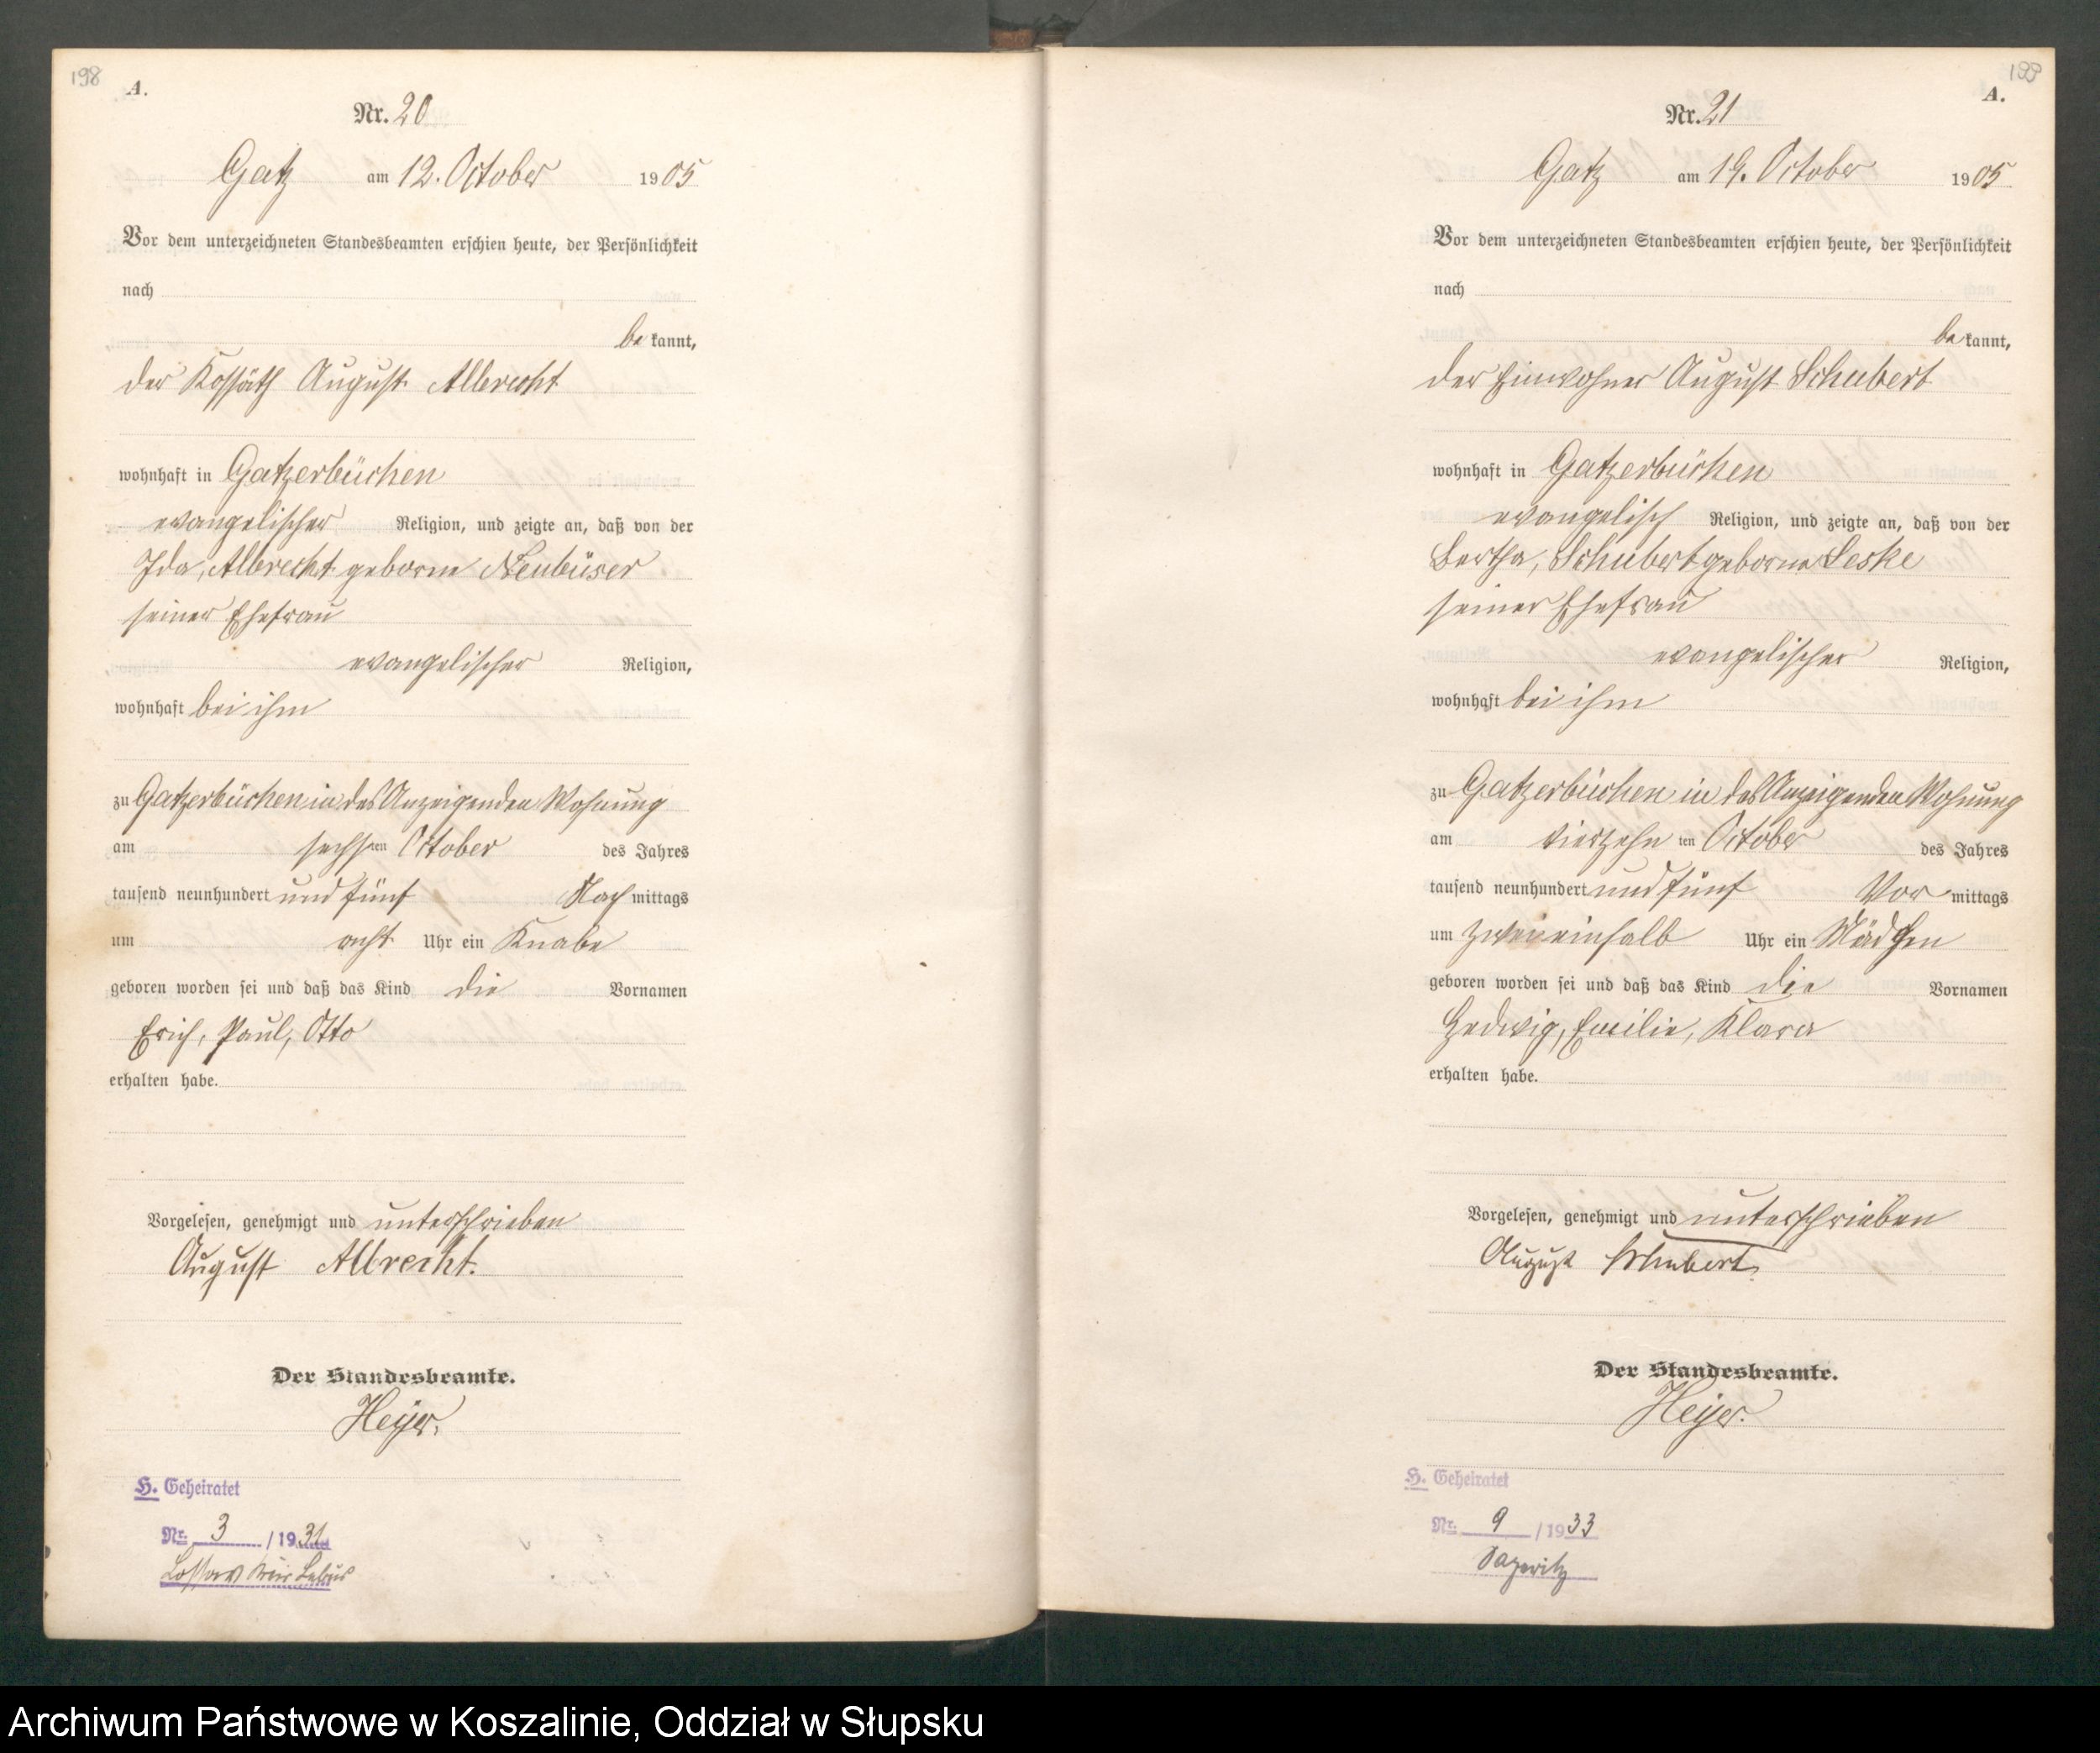 198
A.
Nr. 20
Gatz am 12. October 1905
Vor dem unterzeichneten Standesbeamten erschien heute, der Persönlichkeit
nach
be kannt,
der Kossäth August Albrecht
wohnhaft in Gatzerbüchen
evangelischer Religion, und zeigte an, daß von der
Ida, Albrecht geborne Neubüser
seiner Ehefrau
evangelischer Religion,
wohnhaft bei ihm
zu Gatzerbüchen in des Anzeigenden Wohnung
am sechsten October des Jahres
tausend neunhundert und fünf Nach mittags
um acht Uhr ein Knabe
geboren worden sei und daß das Kind die Vornamen
Erich, Paul, Otto
erhalten habe.
Vorgelesen, genehmigt und unterschrieben
August Albrecht.
Der Standesbeamte.
Heyer.
H. Geheiratet
Nr. 3 / 1931
Lossow Kreis Lebus
199
A.
Nr. 21
Gatz am 19. October 1905
Vor dem unterzeichneten Standesbeamten erschien heute, der Persönlichkeit
nach
be kannt,
der Einwohner August Schubert
wohnhaft in Gatzerbüchen
evangelisch Religion, und zeigte an, daß von der
Bertha, Schubert geborne Leske
seiner Ehefrau
evangelischer Religion,
wohnhaft bei ihm
zu Gatzerbüchen in des Anzeigenden Wohnung
am vierzehn ten October des Jahres
tausend neunhundert und fünf Vor mittags
um zweieinhalb Uhr ein Mädchen
geboren worden sei und daß das Kind die Vornamen
Hedwig, Emilie, Klara
erhalten habe.
Vorgelesen, genehmigt und unterschrieben
August Schubert
Der Standesbeamte.
Heyer.
H. Geheiratet
Nr. 9 / 1933
Sageritz
Archiwum Państwowe w Koszalinie, Oddział w Słupsku